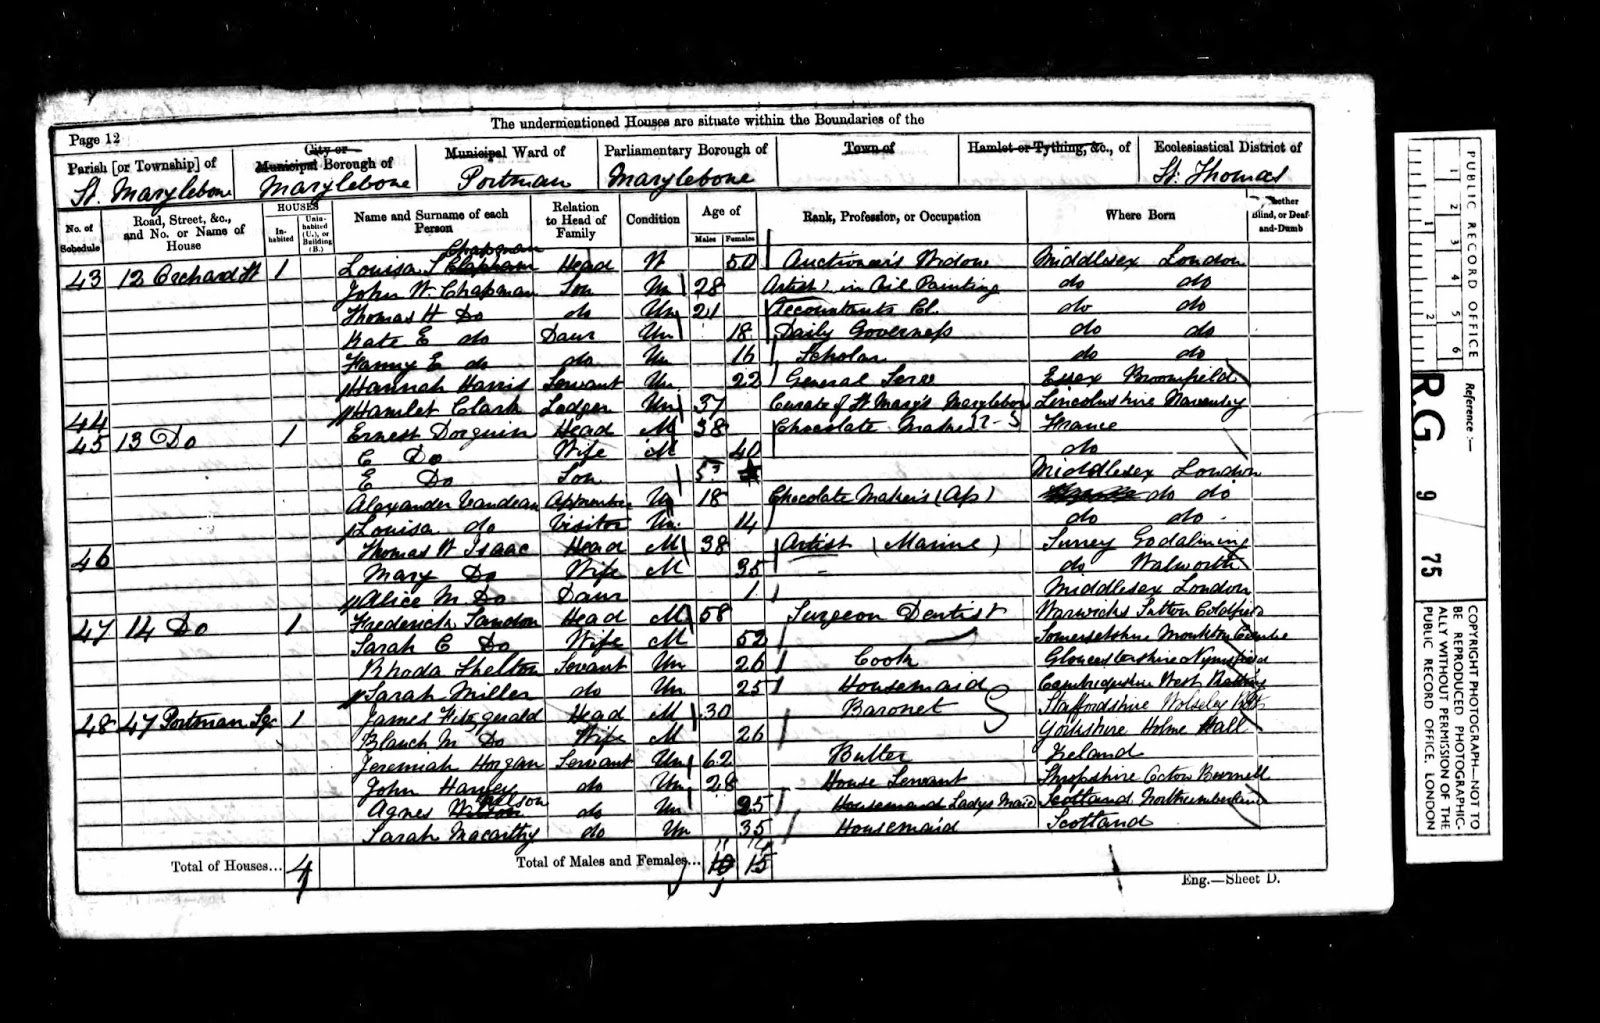 The undermentioned Houses are situate within the Boundaries of the
Page 12
Parish [or Township] of
City or Municipal Borough of
Municipal Ward of
Parliamentary Borough of
Town of
Hamlet or Tything, &c., of
Ecclesiastical District of
St. Marylebone
Marylebone
Portman
Marylebone
St. Thomas
No. of Schedule
Road, Street, &c., and No. or Name of House
HOUSES
In-habited
Unin-habited (U.), or Building (B.)
Name and Surname of each Person
Relation to Head of Family
Condition
Age of
Males
Females
Rank, Profession, or Occupation
Where Born
Whether Blind, or Deaf-and-Dumb
43 12 Orchard St 1 Louisa S Clapham Chapman Head W 50 Auctioneer's Widow Middlesex London
John W. Chapman Son Un 28 Artist in Oil Painting do do
Thomas H Do do Un 21 Accountants Cl. do do
Kate E do Daur Un 18 Daily Governess do do
Fanny E do do Un 16 Scholar do do
Hannah Harris Servant Un 22 General Serv Essex Broomfield
44 Hamlet Clark Lodger Un 37 Curate of St. Mary's Marylebone Lincolnshire Navenby
45 13 Do 1 Ernest Dorguin Head M 38 Chocolate Maker France
E Do Wife M 40 do
E Do Son 5 Middlesex London
Alexander Apprentice Un 18 Chocolate Maker's (Ap) do do
Louisa do Visitor Un. 14 do do
46 Thomas W Isaac Head M 38 Artist (Marine) Surrey Godalming
Mary Do Wife M 35 do Walworth
Alice M Do Daur 1 Middlesex London
47 14 Do 1 Frederick Sandon Head M 58 Surgeon Dentist Warwicks Sutton Coldfield
Sarah E Do Wife M 52 Somersetshire Monkton Combe
Rhoda Shelton Servant Un 26 Cook Gloucestershire Nympsfield
Sarah Miller do Un 25 Housemaid Cambridgeshire West
48 47 Portman Sqr 1 James Fitzgerald Head M 30 Baronet Staffordshire Wolseley
Blanch M Do Wife M 26 Yorkshire Holme Hall
Jeremiah Horgan Servant Un 62 Butler Ireland
John Do Un 28 House Servant Shropshire Acton Burnell
Agnes Wilson do Un 25 Housemaid Ladys Maid Scotland Northumberland
Sarah Macarthy do Un 35 Housemaid Scotland
Total of Houses... 4
Total of Males and Females... 10 15
Eng.—Sheet D.
PUBLIC RECORD OFFICE
1 2 3 4 5 6
1 2
Reference:—
RG 9 75
COPYRIGHT PHOTOGRAPH—NOT TO BE REPRODUCED PHOTOGRAPHICALLY WITHOUT PERMISSION OF THE PUBLIC RECORD OFFICE, LONDON